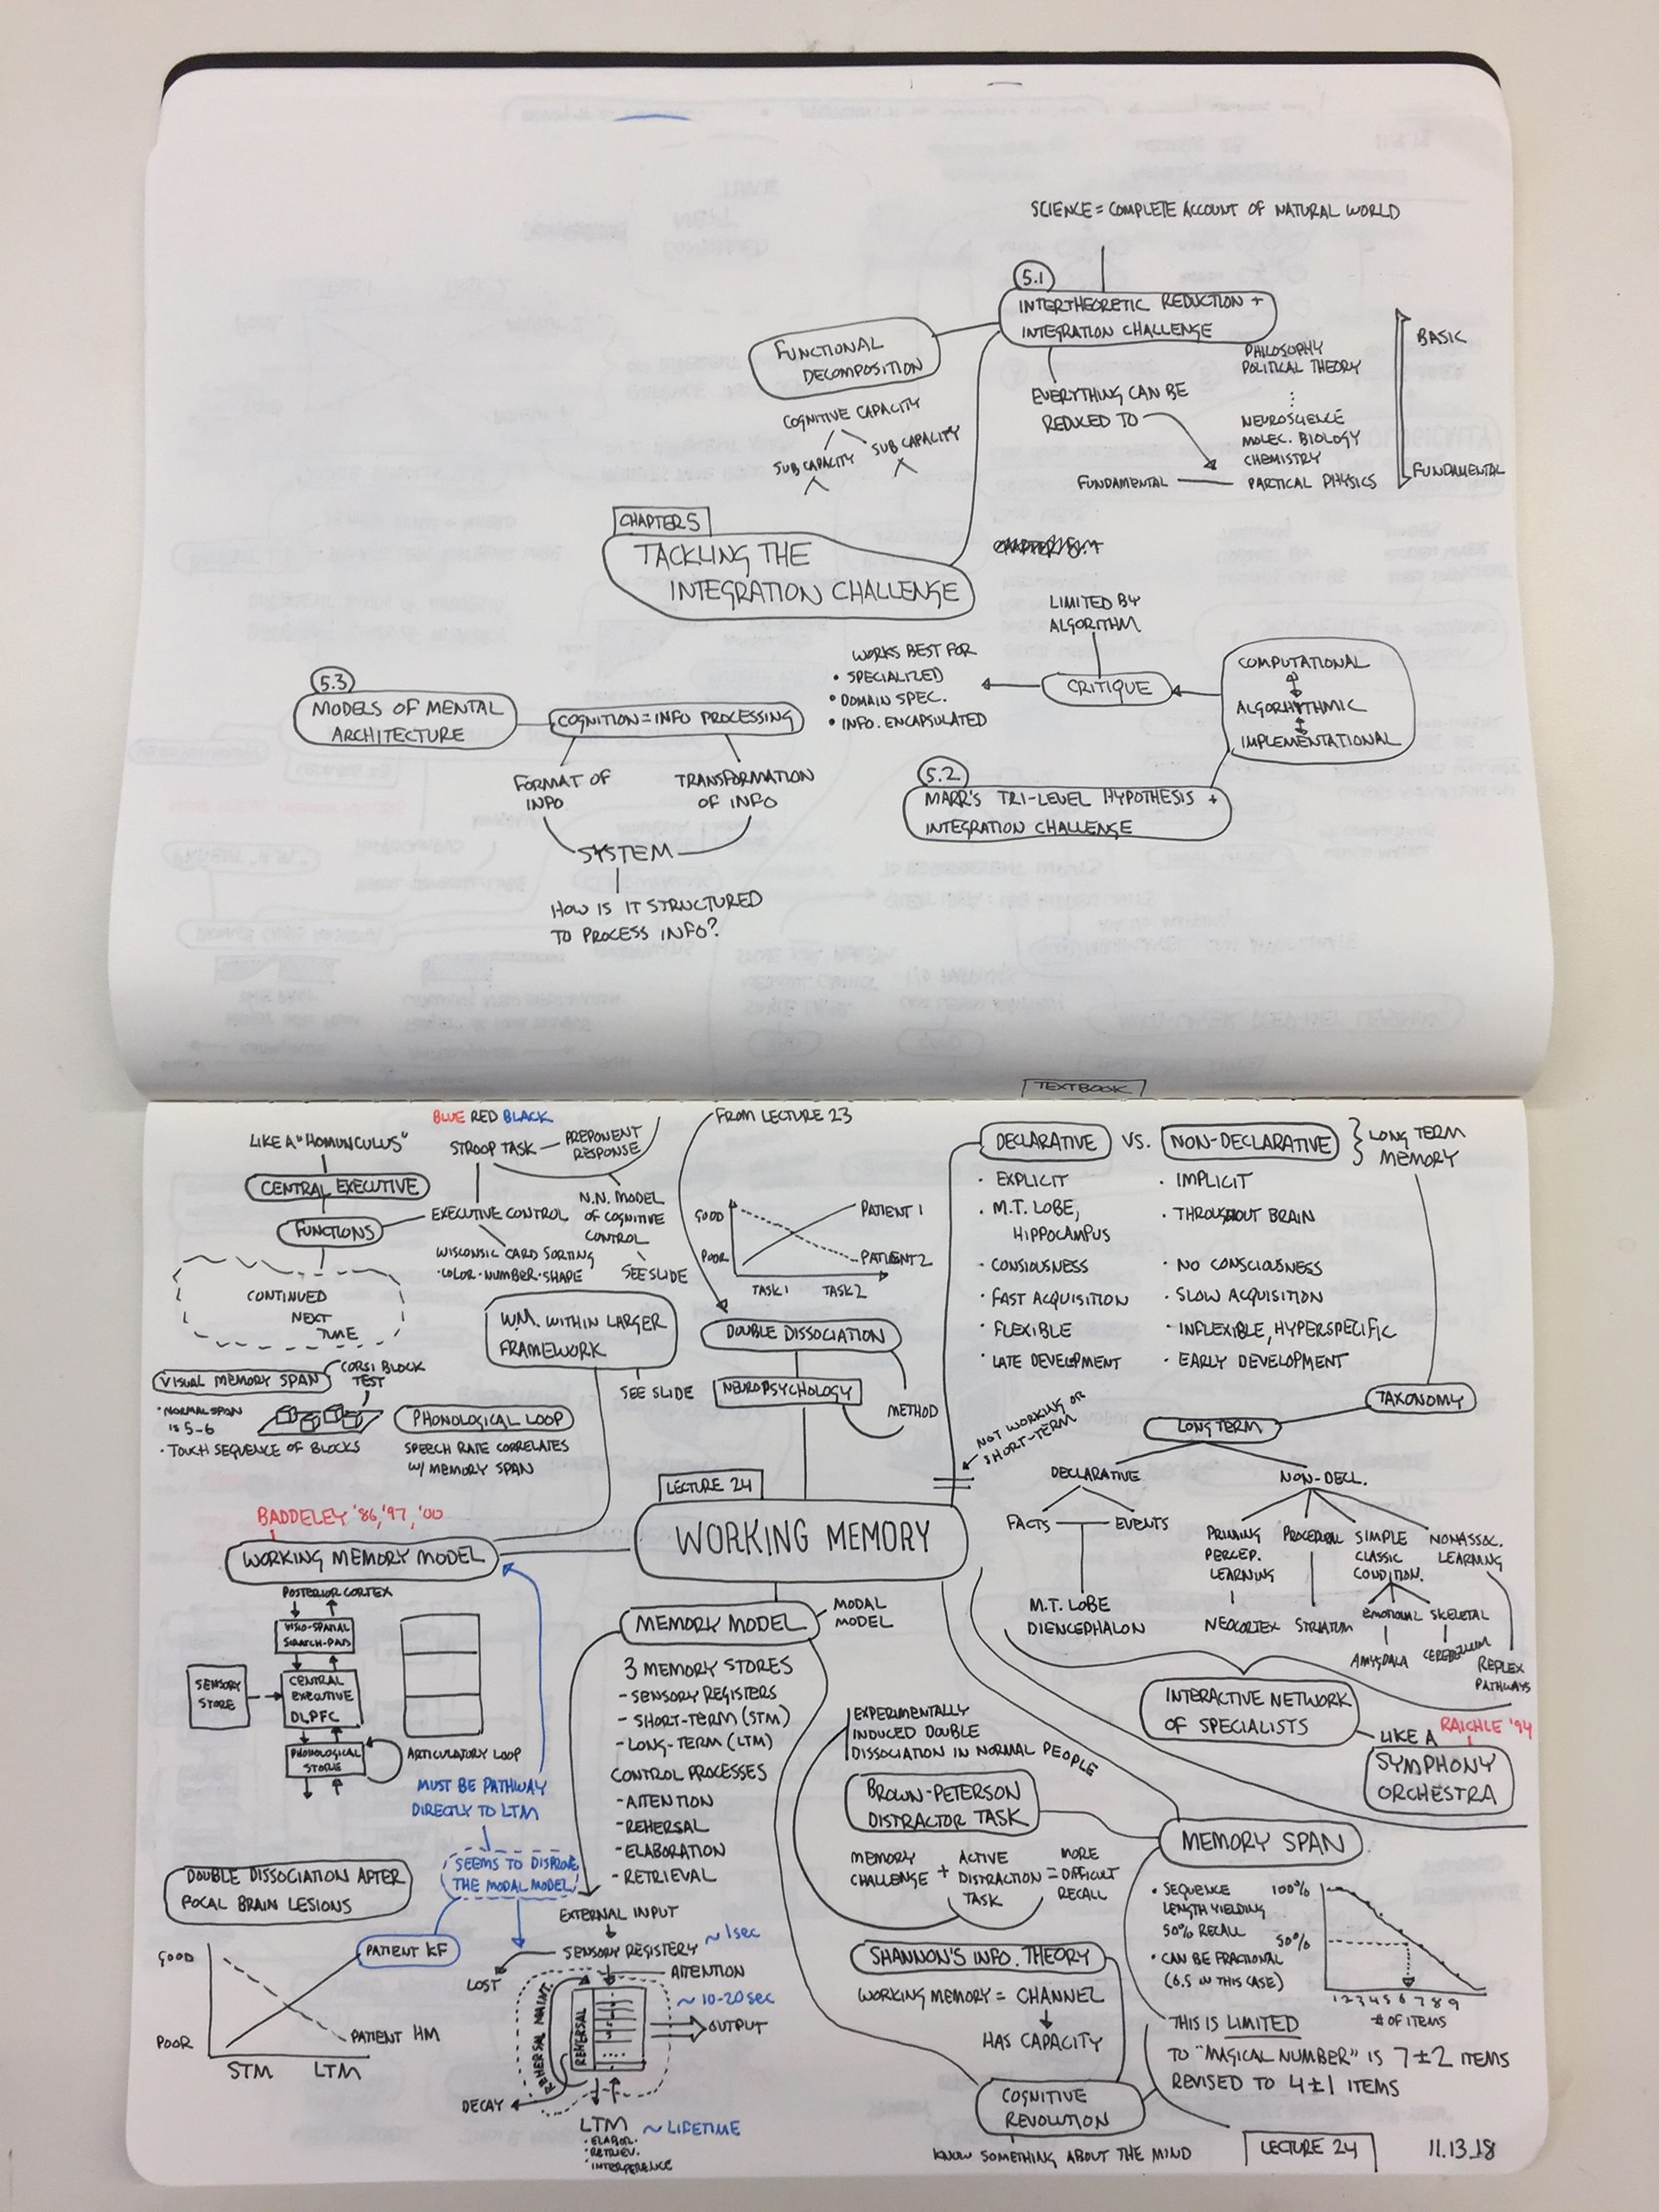 SCIENCE = COMPLETE ACCOUNT OF NATURAL WORLD
5.1
INTERTHEORETIC REDUCTION +
INTEGRATION CHALLENGE
FUNCTIONAL
DECOMPOSITION
COGNITIVE CAPACITY
SUB CAPACITY
SUB CAPACITY
EVERYTHING CAN BE
REDUCED TO
PHILOSOPHY
POLITICAL THEORY
NEUROSCIENCE
MOLEC. BIOLOGY
CHEMISTRY
FUNDAMENTAL
PARTICAL PHYSICS
BASIC
FUNDAMENTAL
CHAPTER 5
TACKLING THE
INTEGRATION CHALLENGE
LIMITED BY
ALGORITHM
WORKS BEST FOR
• SPECIALIZED
• DOMAIN SPEC.
• INFO. ENCAPSULATED
CRITIQUE
COMPUTATIONAL
ALGORHYTHMIC
IMPLEMENTATIONAL
5.2
MARR'S TRI-LEVEL HYPOTHESIS +
INTEGRATION CHALLENGE
5.3
MODELS OF MENTAL
ARCHITECTURE
COGNITION = INFO PROCESSING
FORMAT OF
INFO
TRANSFORMATION
OF INFO
SYSTEM
HOW IS IT STRUCTURED
TO PROCESS INFO?
TEXTBOOK
LIKE A "HOMUNCULUS"
CENTRAL EXECUTIVE
FUNCTIONS
CONTINUED
NEXT
TIME
BLUE RED BLACK
STROOP TASK
PREPONENT
RESPONSE
EXECUTIVE CONTROL
WISCONSIC CARD SORTING
• COLOR • NUMBER • SHAPE
N.N. MODEL
OF COGNITIVE
CONTROL
SEE SLIDE
FROM LECTURE 23
GOOD
POOR
PATIENT 1
PATIENT 2
TASK 1
TASK 2
DOUBLE DISSOCIATION
NEUROPSYCHOLOGY
METHOD
W.M. WITHIN LARGER
FRAMEWORK
SEE SLIDE
DECLARATIVE VS. NON-DECLARATIVE
LONG TERM
MEMORY
• EXPLICIT
• M.T. LOBE,
HIPPOCAMPUS
• CONSIOUSNESS
• FAST ACQUISITION
• FLEXIBLE
• LATE DEVELOPMENT
• IMPLICIT
• THROUGHOUT BRAIN
• NO CONSCIOUSNESS
• SLOW ACQUISITION
• INFLEXIBLE, HYPERSPECIFIC
• EARLY DEVELOPMENT
TAXONOMY
LONG TERM
DECLARATIVE
NON-DECL.
FACTS
EVENTS
M.T. LOBE
DIENCEPHALON
PRIMING
PERCEP.
LEARNING
NEOCORTEX
PROCEDRAL
STRIATUM
SIMPLE
CLASSIC
CONDITION.
EMOTIONAL
SKELETAL
AMYGDALA
CEREBELLUM
NONASSOC.
LEARNING
REFLEX
PATHWAYS
NOT WORKING OR
SHORT-TERM
VISUAL MEMORY SPAN
CORSI BLOCK
TEST
• NORMAL SPAN
IS 5-6
• TOUCH SEQUENCE OF BLOCKS
PHONOLOGICAL LOOP
SPEECH RATE CORRELATES
W/ MEMORY SPAN
LECTURE 24
WORKING MEMORY
BADDELEY '86, '97, '00
WORKING MEMORY MODEL
POSTERIOR CORTEX
VISIO-SPATIAL
SCRATCH-PAD
SENSORY
STORE
CENTRAL
EXECUTIVE
DLPFC
PHONOLOGICAL
STORE
ARTICULATORY LOOP
MUST BE PATHWAY
DIRECTLY TO LTM
SEEMS TO DISPROVE
THE MODAL MODEL
MEMORY MODEL
MODAL
MODEL
3 MEMORY STORES
- SENSORY REGISTERS
- SHORT-TERM (STM)
- LONG-TERM (LTM)
CONTROL PROCESSES
- ATTENTION
- REHERSAL
- ELABORATION
- RETRIEVAL
EXTERNAL INPUT
SENSORY REGISTERY
~ 1 SEC
LOST
ATTENTION
~ 10-20 SEC
REHERSAL MAINT.
REHERSAL
OUTPUT
DECAY
LTM ~ LIFETIME
• ELABOR.
• RETRIEV.
• INTERFERENCE
DOUBLE DISSOCIATION AFTER
FOCAL BRAIN LESIONS
GOOD
POOR
PATIENT KF
PATIENT HM
STM
LTM
EXPERIMENTALLY
INDUCED DOUBLE
DISSOCIATION IN NORMAL PEOPLE
BROWN-PETERSON
DISTRACTOR TASK
MEMORY
CHALLENGE
+
ACTIVE
DISTRACTION
TASK
=
MORE
DIFFICULT
RECALL
SHANNON'S INFO. THEORY
WORKING MEMORY = CHANNEL
HAS CAPACITY
COGNITIVE
REVOLUTION
KNOW SOMETHING ABOUT THE MIND
INTERACTIVE NETWORK
OF SPECIALISTS
LIKE A
RAICHLE '94
SYMPHONY
ORCHESTRA
MEMORY SPAN
• SEQUENCE
LENGTH YIELDING
50% RECALL
• CAN BE FRACTIONAL
(6.5 IN THIS CASE)
100%
50%
1 2 3 4 5 6 7 8 9
# OF ITEMS
THIS IS LIMITED
TO "MAGICAL NUMBER" IS 7±2 ITEMS
REVISED TO 4±1 ITEMS
LECTURE 24
11.13.18